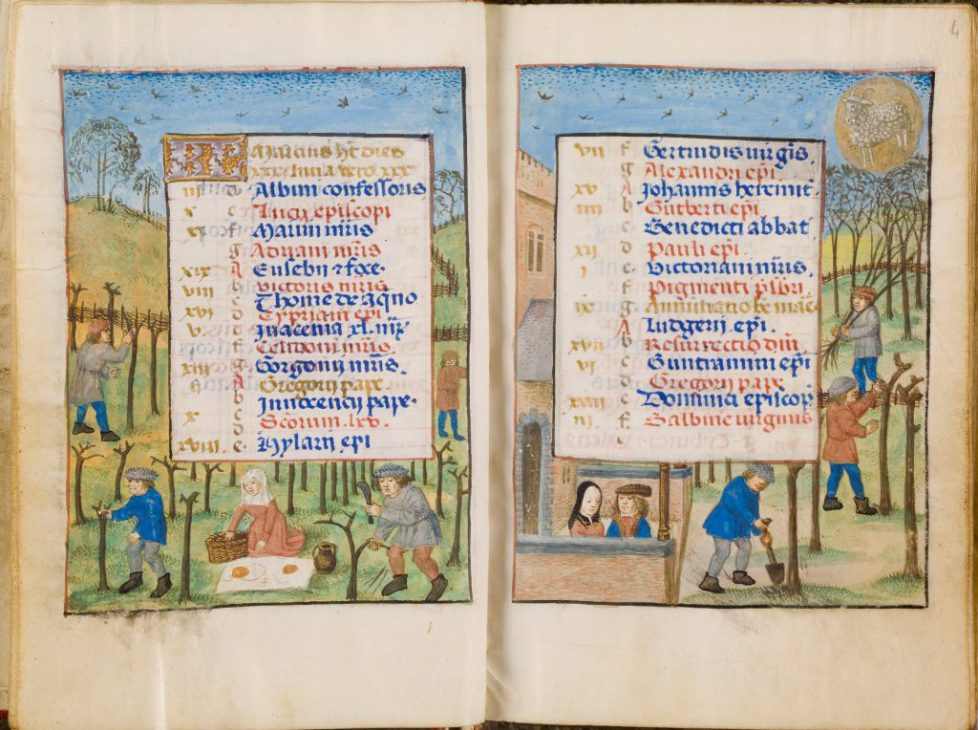 KL Marcius ht dies
xxxi luna vero xxx
iii d Albini confessoris
x e Lucij episcopi
f Marini mris
g Adriani mris
xix A Eusebij & foce
viii b victoris mris
c Thome de aqno
xvi d Cypriani epi
v e xl.
f mris
xiii g Gorgonij mris
ii A Gregorij pape
b Innocencij pape
x c Scorum lxv.
xviii e Hylarij epi
4
vii f Gertrudis uirgis
g Alexandri epi
xv A Johannis heremit
iiii b Gutberti epi
c Benedicti abbat
xii d Pauli epi
i e Victoriani mris
f Pigmenti psbri
ix g Annuntiatio be marie
A Ludgerij epi
xvii b Resurrectio dni
vi c Guntrammi epi
d Gregorij pape
xiiii e Dominici episcop
iii f Balbine uirginis